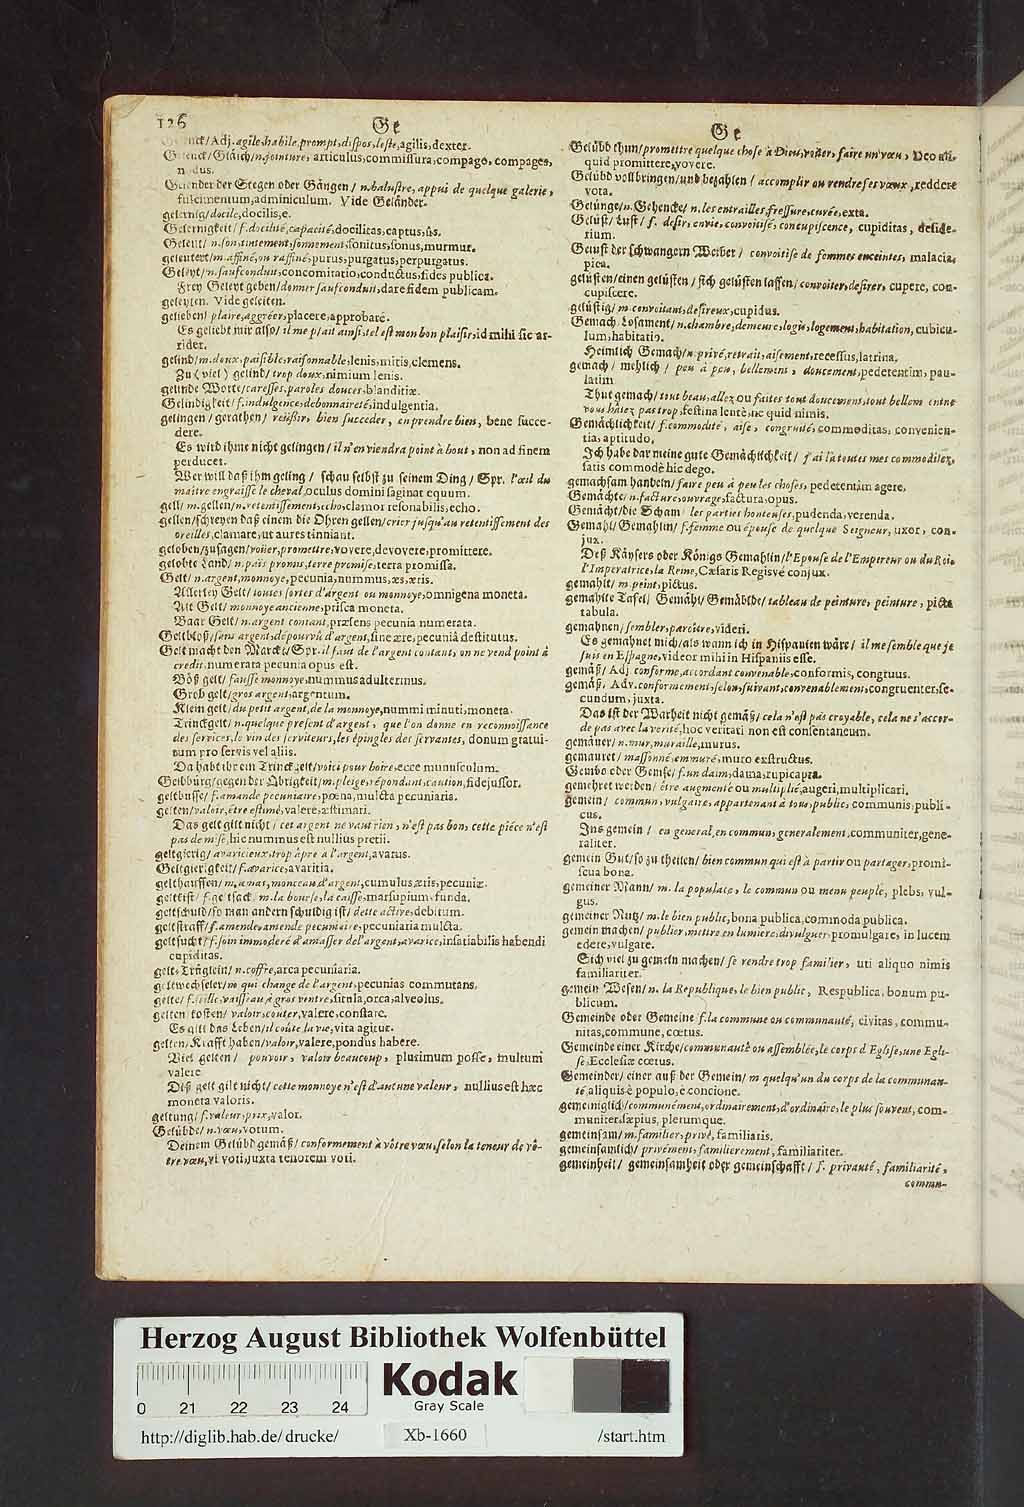 126
Ge
Adj. agile, habile, prompt, dispos, leste, agilis, dexter.
Gelenck/ Gläich/ n. jointure, articulus, commissura, compago, compages,
nodus.
Gelender der Stegen oder Gängen/ n. balustre, appui de quelque galerie,
fulcimentum, adminiculum. Vide Geländer.
gelernig/ docile, docilis, e.
Gelernigkeit/ f. docilité, capacité, docilitas, captus, ûs.
Geleut/ n. son, tintement, sonnement, sonitus, sonus, murmur.
geleutert/ m. affiné, ou raffiné, purus, purgatus, perpurgatus.
Geleyt/ n. saufconduit, concomitatio, conductus, fides publica.
Frey Geleyt geben/ donner saufconduit, dare fidem publicam.
geleyten. Vide geleiten.
gelieben/ plaire, aggréer, placere, approbare.
Es geliebt mir also/ il me plait ainsi, tel est mon bon plaisir, id mihi sic ar-
rider.
gelind/ m. doux, paisible, raisonnable, lenis, mitis, clemens.
Zu (viel) gelind/ trop doux, nimium lenis.
gelinde Worte/ caresses, paroles douces, blanditiæ.
Gelindigkeit/ f. indulgence, debonnaireté, indulgentia.
gelingen/ gerathen/ reüssir, bien succeder, en prendre bien, bene succe-
dere.
Es wird ihme nicht gelingen/ il n'en viendra point à bout, non ad finem
perducet.
Wer will daß ihm geling/ schau selbst zu seinem Ding/ Spr. l'œil du
maître engraisse le cheval, oculus domini saginat equum.
gell/ m. gellen/ n. retentissement, echo, clamor resonabilis, echo.
gellen/ schreyen daß einem die Ohren gellen/ crier jusqu'au retentissement des
oreilles, clamare, ut aures tinniant.
geloben/ zusagen/ voüer, promettre, vovere, devovere, promittere.
gelobte Land/ n. païs promis, terre promise, terra promissa.
Gelt/ n. argent, monnoye, pecunia, nummus, æs, æris.
Allerley Gelt/ toutes sortes d'argent ou monnoye, omnigena moneta.
Alt Gelt/ monnoye ancienne, prisca moneta.
Baar Gelt/ n. argent contant, præsens pecunia numerata.
Geltbloß/ sans argent, dépourvû d'argent, sine ære, pecuniâ destitutus.
Gelt macht den Marckt/ Spr. il faut de l'argent contant, on ne vend point à
credit, numerata pecunia opus est.
Böß gelt/ fausse monnoye, nummus adulterinus.
Grob gelt/ gros argent, argentum.
Klein gelt/ du petit argent, de la monnoye, nummi minuti, moneta.
Trinckgelt/ n. quelque present d'argent, que l'on donne en reconnoissance
des services, le vin des serviteurs, les épingles des servantes, donum gratui-
tum pro servis vel aliis.
Da habt ihr ein Trinckgelt/ voici pour boire, ecce munusculum.
Geltbürg/ gegen der Obrigkeit/ m. pleige, répondant, caution, fidejussor.
geltbusse/ f. amande pecuniaire, pœna, mulcta pecuniaria.
gelten/ valoir, être estimé, valere, æstimari.
Das gelt gilt nicht/ cet argent ne vaut rien, n'est pas bon, cette piéce n'est
pas de mise, hic nummus est nullius pretii.
geltgierig/ avaricieux, trop âpre à l'argent, avarus.
Geltgierigkeit/ f. avarice, avaritia.
gelthauffen/ m. amas, monceau d'argent, cumulus æris, pecuniæ.
geltkist/ f. geltsack/ m. la bourse, la caisse, marsupium, funda.
geltschuld/ so man andern schuldig ist/ dette active, debitum.
geltstraff/ f. amende, amende pecuniaire, pecuniaria mulcta.
geltsucht/ f. soin immoderé d'amasser de l'argent, avarice, insatiabilis habendi
cupiditas.
gelt-Trüglein/ n. coffre, arca pecuniaria.
geltwechseler/ m qui change de l'argent, pecunias commutans.
gelte/ f. seille, vaisseau à gros ventre, situla, orca, alveolus.
gelten kosten/ valoir, couter, valere, constare.
Es gilt das Leben/ il coûte la vie, vita agitur.
gelten/ Krafft haben/ valoir, valere, pondus habere.
Viel gelten/ pouvoir, valoir beaucoup, plurimum posse, multum
valere
Diß gelt gilt nicht/ cette monnoye n'est d'aucune valeur, nullius est hæc
moneta valoris.
geltung/ f. valeur, prix, valor.
Gelübde/ n. vœu, votum.
Deinem Gelübd gemäß/ conformement à vôtre vœu, selon la teneur de vô-
tre vœu, vi voti, juxta tenorem voti.
Ge
Gelübd thun/ promettre quelque chose à Dieu, voüer, faire un vœu, Deo ali-
quid promittere, vovere.
Gelübd vollbringen/ und bezahlen/ accomplir ou rendre ses vœux, reddere
vota.
Gelünge/ n. Gehencke/ n. les entrailles, fressure, curée, exta.
Gelüst/ Lust/ f. desir, envie, convoitise, concupiscence, cupiditas, deside-
rium.
Gelust der schwangern Weiber/ convoitise de femmes enceintes, malacia,
pica.
gelüsten/ einen gelüsten/ sich gelüsten lassen/ convoiter, desirer, cupere, con-
cupiscere.
gelüstig/ m. convoitant, desireux, cupidus.
Gemach, Losament/ n. chambre, demeure, logis, logement, habitation, cubicu-
lum, habitatio.
Heimlich Gemach/ n. privé, retrait, aisement, recessus, latrina.
gemach/ mehlich/ peu à peu, bellement, doucement, pedetentim, pau-
latim
Thut gemach/ tout beau, allez ou faites tout doucement, tout bellem entne
vous hâtez pas trop, festina lente, ne quid nimis.
Gemächlichkeit/ f. commodité, aise, congruité, commoditas, convenien-
tia, aptitudo.
Ich habe dar meine gute Gemächlichkeit/ j'ai là toutes mes commoditez,
satis commodè hic dego.
gemachsam handeln/ faire peu à peu les choses, pedetentim agere.
Gemächte/ n. facture, ouvrage, factura, opus.
Gemächt/ die Scham/ les parties honteuses, pudenda, verenda.
Gemahl/ Gemahlin/ f. femme ou épouse de quelque Seigneur, uxor, con-
jux.
Deß Käysers oder Königs Gemahlin/ l'Epouse de l'Empereur ou du Roi,
l'Imperatrice, la Reine, Cæsaris Regisvè conjux.
gemahlt/ m. peint, pictus.
gemahlte Tafel/ Gemähl/ Gemählde/ tableau de peinture, peinture, picta
tabula.
gemahnen/ sembler, paroître, videri.
Es gemahnet mich/ als wann ich in Hispanien wäre/ il me semble que je
suis en Espagne, videor mihi in Hispaniis esse.
gemäß/ Adj. conforme, accordant convenable, conformis, congruus.
gemäß/ Adv. conformement, selon, suivant, convenablement, congruenter, se-
cundum, juxta.
Das ist der Warheit nicht gemäß/ cela n'est pas croyable, cela ne s'accor-
de pas avec la verité, hoc veritati non est consentaneum.
gemäuer/ n. mur, muraille, murus.
gemauret/ massonné, emmuré, muro exstructus.
Gembs oder Gemse/ f. un daim, dama, rupicapra.
gemehret werden/ être augmenté ou multiplié, augeri, multiplicari.
gemein/ commun, vulgaire, appartenant à tous, public, communis, publi-
cus.
Ins gemein/ en general, en commun, generalement, communiter, gene-
raliter.
gemein Gut/ so zu theilen/ bien commun qui est à partir ou partager, promi-
scua bona.
gemeiner Mann/ m. la populace, le commun ou menu peuple, plebs, vul-
gus.
gemeiner Nutz/ m. le bien public, bona publica, commoda publica.
gemein machen/ publier, mettre en lumiere, divulguer, promulgare, in lucem
edere, vulgare.
Sich viel zu gemein machen/ se rendre trop familier, uti aliquo nimis
familiariter.
gemein Wesen/ n. la Republique, le bien public, Respublica, bonum pu-
blicum.
Gemeinde oder Gemeine/ f. la commune ou communauté, civitas, commu-
nitas, commune, cœtus.
Gemeinde einer Kirche/ communauté ou assemblée, le corps d'Eglise, une Egli-
se, Ecclesiæ cœtus.
Gemeinder/ einer auß der Gemein/ m quelqu'un du corps de la communau-
té, aliquis è populo, è concione.
gemeiniglich/ communément, ordinairement, d'ordinaire, le plus souvent, com-
muniter, sæpius, plerumque.
gemeinsam/ m. familier, privé, familiaris.
gemeinsamlich/ privément, familierement, familiariter.
gemeinheit/ gemeinsamheit oder gemeinschafft/ f. privauté, familiarité,
commu-
Herzog August Bibliothek Wolfenbüttel
Kodak
Gray Scale
0 21 22 23 24
http://diglib.hab.de/drucke/
Xb-1660
/start.htm